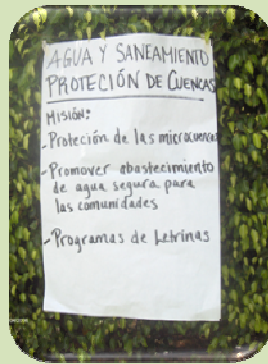 AGUA Y SANEAMIENTO
PROTECIÓN DE CUENCAS
MISIÓN:
- Proteción de las microcuencas
- Promover abastecimiento
de agua segura para
las comunidades
- Programas de Letrinas